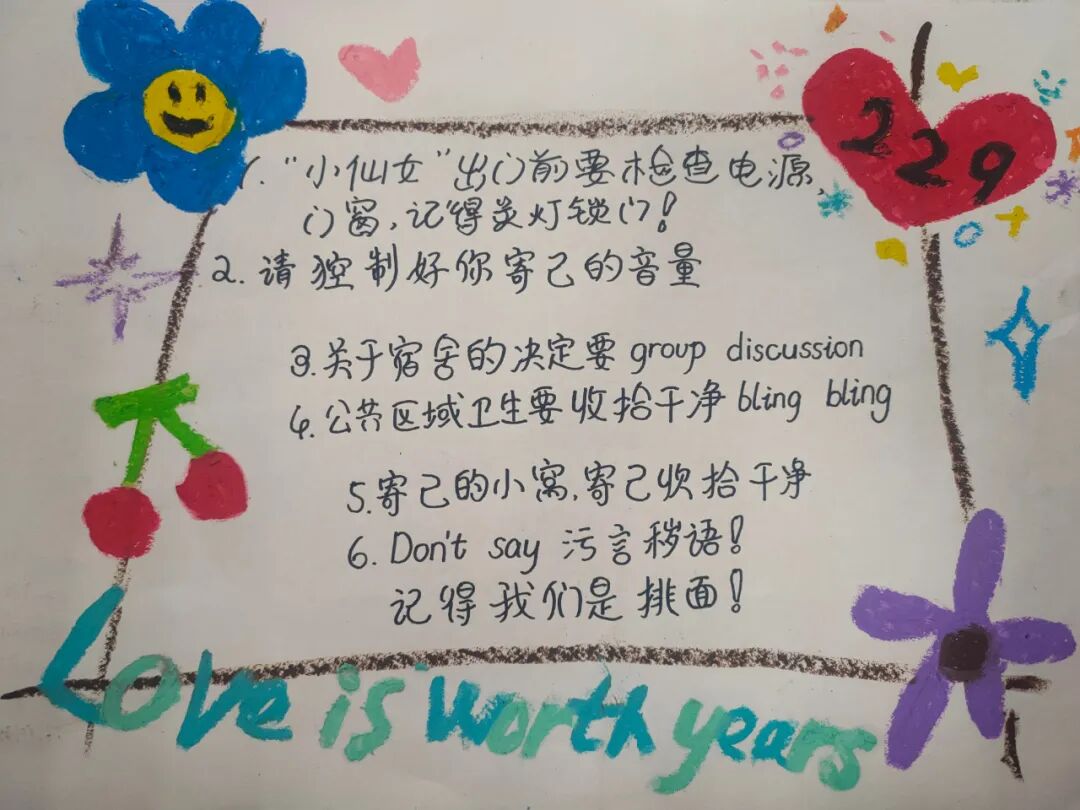 229
1. "小仙女"出门前要检查电源、
门窗,记得关灯锁门!
2. 请控制好你寄己的音量
3. 关于宿舍的决定要 group discussion
4. 公共区域卫生要收拾干净 bling bling
5. 寄己的小窝,寄己收拾干净
6. Don't say 污言秽语!
记得我们是排面!
Love is worth years